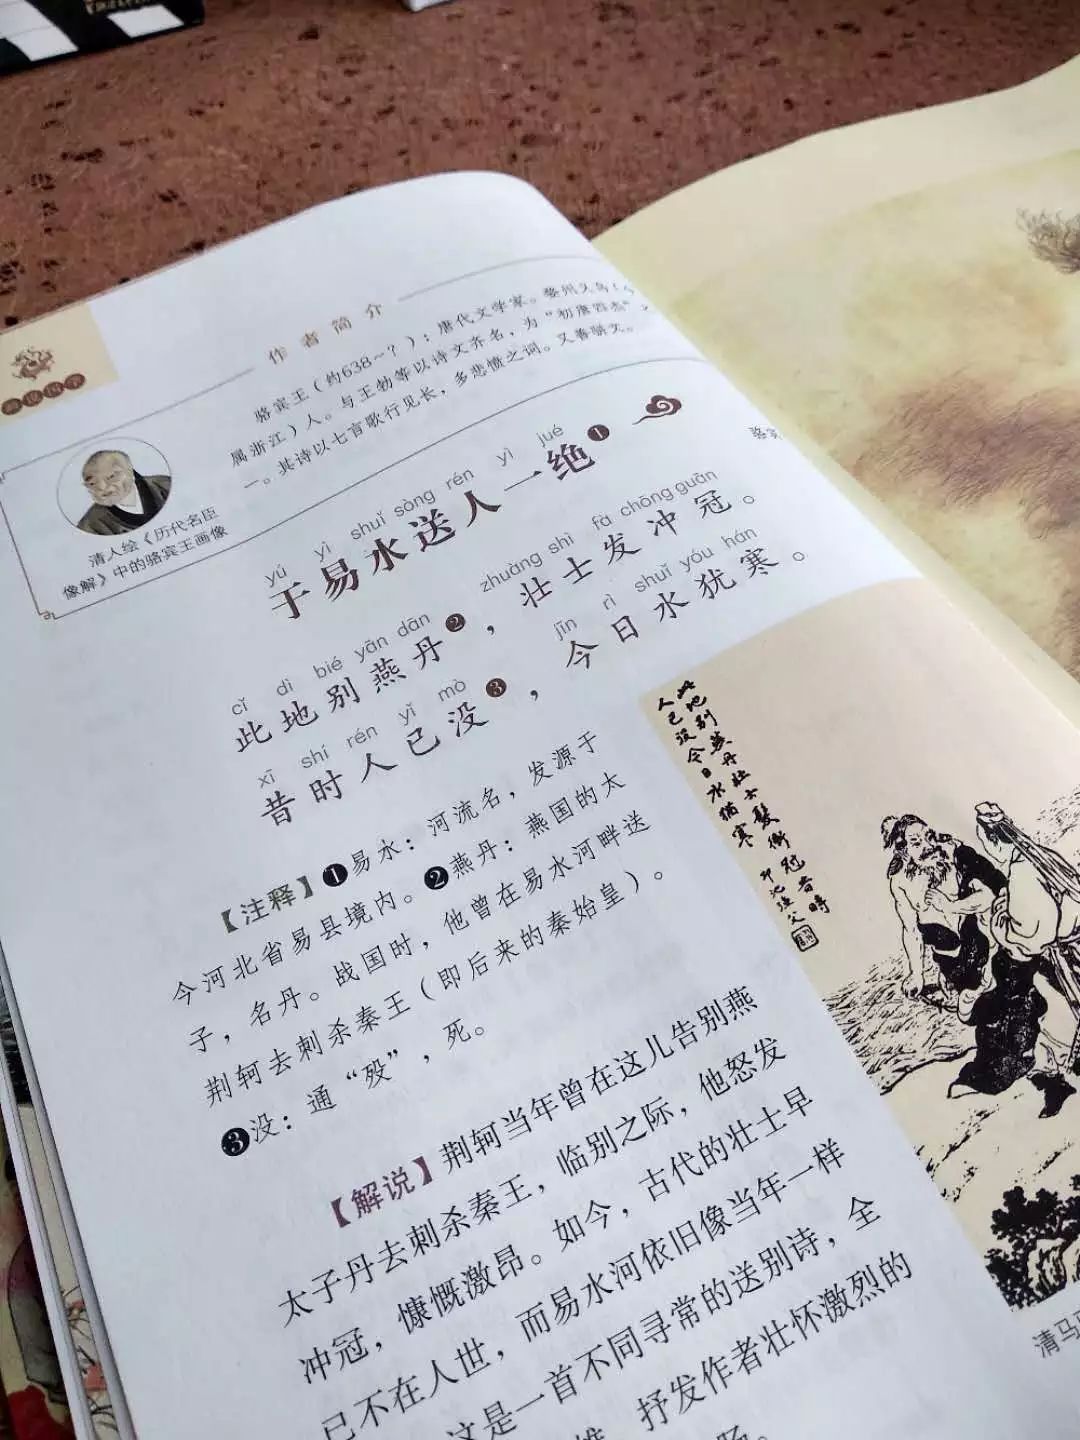 作者简介
骆宾王(约638~?):唐代文学家。婺州义乌(今
属浙江)人。与王勃等以诗文齐名,为“初唐四杰”之
一。其诗以七言歌行见长,多悲愤之词。又善骈文。
清人绘《历代名臣
像解》中的骆宾王画像
yú yì shuǐ sòng rén yì jué
于易水送人一绝❶
cǐ dì bié yān dān zhuàng shì fà chōng guān
此地别燕丹❷,壮士发冲冠。
xī shí rén yǐ mò jīn rì shuǐ yóu hán
昔时人已没❸,今日水犹寒。
【注释】❶易水:河流名,发源于
今河北省易县境内。❷燕丹:燕国的太
子,名丹。战国时,他曾在易水河畔送
荆轲去刺杀秦王(即后来的秦始皇)。
❸没:通“殁”,死。
【解说】荆轲当年曾在这儿告别燕
太子丹去刺杀秦王,临别之际,他怒发
冲冠,慷慨激昂。如今,古代的壮士早
已不在人世,而易水河依旧像当年一样
这是一首不同寻常的送别诗,全
抒发作者壮怀激烈的
骆宾
此地别燕丹壮士髮衝冠昔時
人已没今日水猶寒
清马